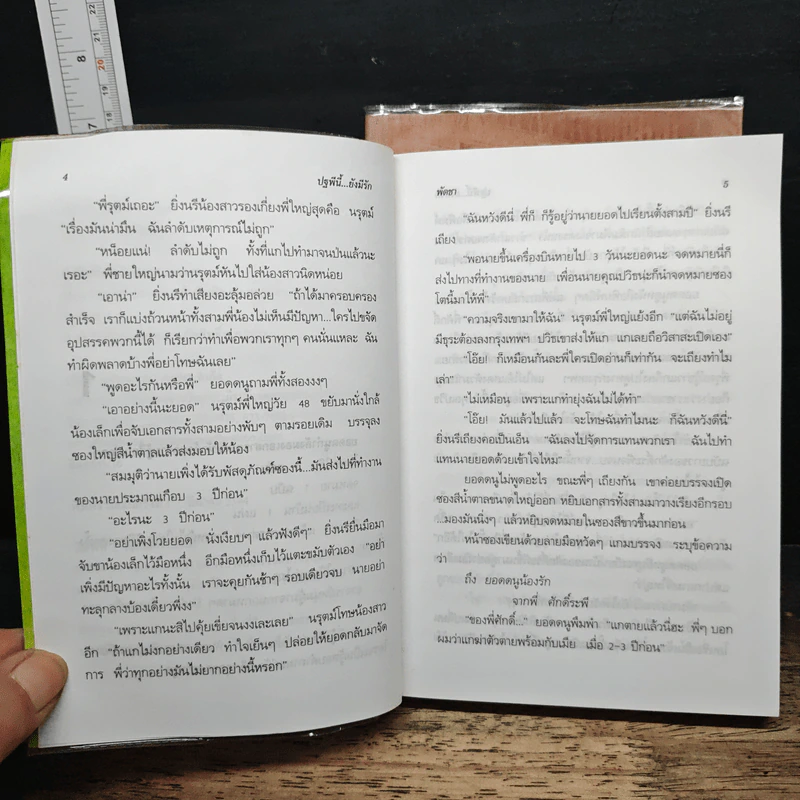 8
22
21
20
19
18
7
4
ปฐพีนี้...ยังมีรัก
"พี่รุตม์เถอะ" ยิ่งนรีน้องสาวรองเกี่ยงพี่ใหญ่สุดคือ นรุตม์
"เรื่องมันน่ามึน ฉันลำดับเหตุการณ์ไม่ถูก"
"หน็อยแน่! ลำดับไม่ถูก ทั้งที่แกไปทำมาจนป่นแล้วนะ
เรอะ" พี่ชายใหญ่นามว่านรุตม์หันไปใส่น้องสาวนิดหน่อย
"เอาน่า" ยิ่งนรีทำเสียงอะลุ้มอล่วย "ถ้าได้มาครอบครอง
สำเร็จ เราก็แบ่งถ้วนหน้าทั้งสามพี่น้องไม่เห็นมีปัญหา...ใครไปขจัด
อุปสรรคพวกนี้ได้ ก็เรียกว่าทำเพื่อพวกเราทุกๆ คนนั่นแหละ ฉัน
ทำผิดพลาดบ้างพี่อย่าโทษฉันเลย"
"พูดอะไรกันหรือพี่" ยอดดนูถามพี่ทั้งสองงงๆ
"เอาอย่างนี้นะยอด" นรุตม์พี่ใหญ่วัย 48 ขยับมานั่งใกล้
น้องเล็กเพื่อจับเอกสารทั้งสามอย่างพับๆ ตามรอยเดิม บรรจุลง
ซองใหญ่สีน้ำตาลแล้วส่งมอบให้น้อง
"สมมุติว่านายเพิ่งได้รับพัสดุภัณฑ์ซองนี้...มันส่งไปที่ทำงาน
ของนายประมาณเกือบ 3 ปีก่อน"
"อะไรนะ 3 ปีก่อน"
"อย่าเพิ่งโวยยอด นั่งเงียบๆ แล้วฟังดีๆ" ยิ่งนรียื่นมือมา
จับขาน้องเล็กไว้มือหนึ่ง อีกมือหนึ่งเก็บไว้แตะขมับตัวเอง "อย่า
เพิ่งมีปัญหาอะไรทั้งนั้น เราจะคุยกันช้าๆ รอบเดียวจบ นายอย่า
ทะลุกลางบ้องเดี๋ยวพี่งง"
"เพราะแกนะสิไปคุ้ยเขี่ยจนงงเละเลย" นรุตม์โทษน้องสาว
อีก "ถ้าแกไม่งกอย่างเดียว ทำใจเย็นๆ ปล่อยให้ยอดกลับมาจัด
การ พี่ว่าทุกอย่างมันไม่ยากอย่างนี้หรอก"
พัดชา
5
"ฉันหวังดีนี่ พี่ก็ ก็รู้อยู่ว่านายยอดไปเรียนตั้งสามปี" ยิ่งนรี
เถียง
"พอนายขึ้นเครื่องบินหายไป 3 วันนะยอดนะ จดหมายนี่ก็
ส่งไปทางที่ทำงานของนาย เพื่อนนายคุณปวิชน่ะก็นำจดหมายซอง
โตนี้มาให้พี่"
"ความจริงเขามาให้ฉัน" นรุตม์พี่ใหญ่แย้งอีก "แต่ฉันไม่อยู่
มีธุระต้องลงกรุงเทพฯ ปวิชเขาส่งให้แก แกเลยถือวิสาสะเปิดเอง"
"โอ๊ย! ก็เหมือนกันละพี่ใครเปิดอ่านก็เท่ากัน จะเถียงทำไม
เล่า"
"ไม่เหมือน เพราะแกทำยุ่งฉันไม่ได้ทำ"
"โอ๊ย! มันแล้วไปแล้ว จะโทษฉันทำไมนะ ก็ฉันหวังดีนี่"
ยิ่งนรีเถียงคอเป็นเอ็น "ฉันลงไปจัดการแทนพวกเรา ฉันไปทำ
แทนนายยอดด้วยเข้าใจไหม"
ยอดดนูไม่พูดอะไร ขณะพี่ๆ เถียงกัน เขาค่อยบรรจงเปิด
ซองสีน้ำตาลขนาดใหญ่ออก หยิบเอกสารทั้งสามมาวางเรียงอีกรอบ
...มองมันนิ่งๆ แล้วหยิบจดหมายในซองสีขาวขึ้นมาก่อน
หน้าซองเขียนด้วยลายมือหวัดๆ แกมบรรจง ระบุข้อความ
ว่า
ถึง ยอดดนูน้องรัก
จากพี่ ศักดิ์ระพี
"ของพี่ศักดิ์..." ยอดดนูพึมพำ "แกตายแล้วนี่ฮะ พี่ๆ บอก
ผมว่าแกฆ่าตัวตายพร้อมกับเมีย เมื่อ 2-3 ปีก่อน"